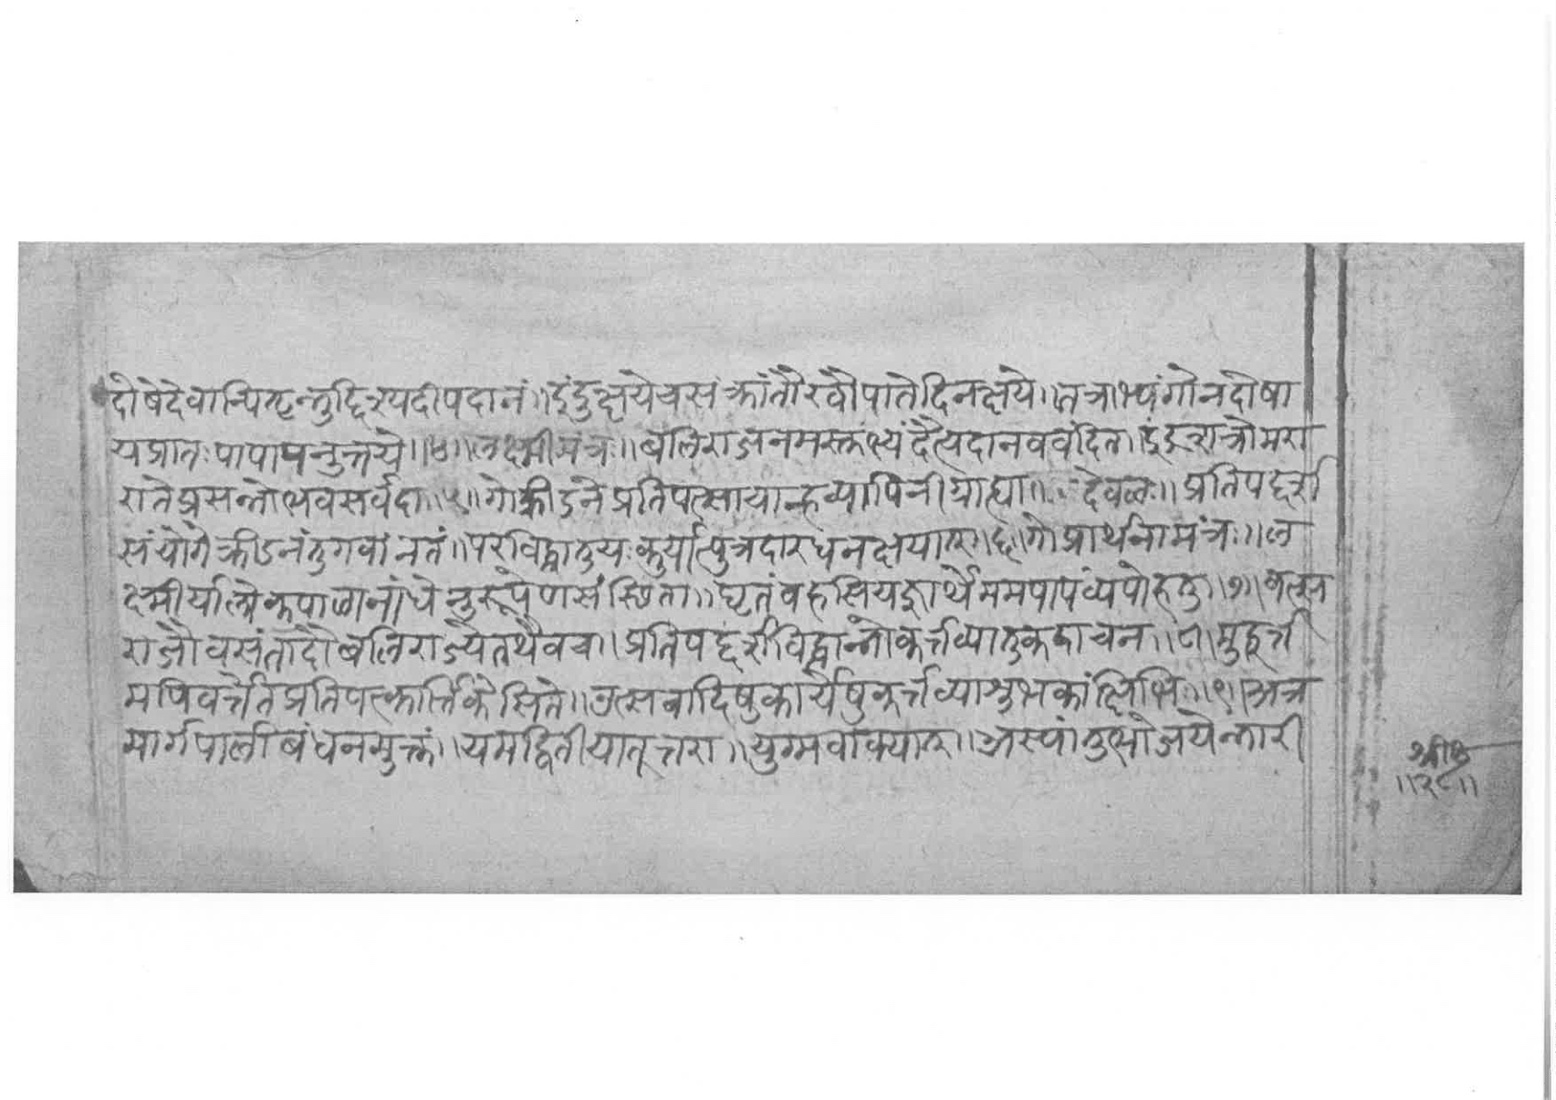 दोषेदेवान्पितॄन्नुद्दिश्यदीपदानं॥इंदुक्षयेचसंक्रांतौरवौपातेदिनक्षये॥तत्राभ्यंगोनदोषा
यप्रातःपापापनुत्तये॥४॥लक्ष्मीमंत्रः॥बलिराजनमस्तुभ्यंदैत्यदानववंदित॥
रातेप्रसन्तोभवसर्वदा॥५॥गोक्रीडनेप्रतिपत्सायान्हव्यापिनीग्राह्या॥देवलः॥प्रतिपद्दर्श
संयोगेक्रीडनंतुगवांनतं॥परविद्धातुयःकुर्यात्पुत्रदारधनक्षयात्॥६॥गोप्रार्थनामंत्रः॥ल
क्ष्मीर्यालोकपाळानांधेनुरूपेणसंस्थिता॥घृतंवहतियज्ञार्थेममपापंव्यपोहतु॥७॥वत्स
राजौवसंतादौबलिराज्येतथैवच॥प्रतिपद्दर्शविद्धान्तोकर्त्तव्यातुकदाचन॥८॥मुहूर्त्त
मपिवर्त्तेतप्रतिपत्कार्त्तिकेसिते॥उत्सवादिषुकार्येषुकर्त्तव्याशुभकांक्षिभिः॥९॥अत्र
मार्गपालीबंधनमुक्तं॥यमद्वितीयातूत्तरा॥युग्मवाक्यात्॥
॥२८॥